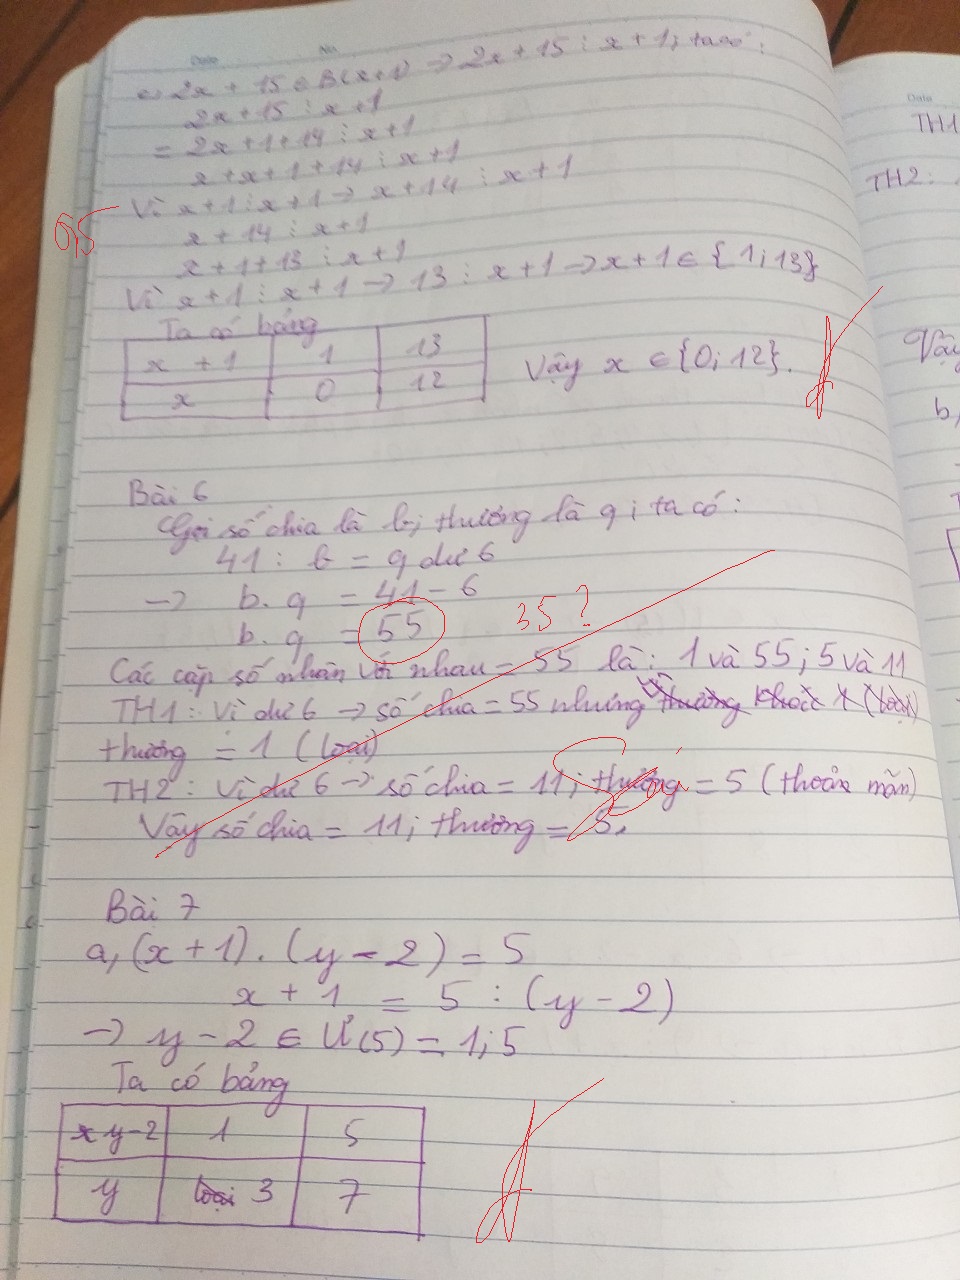 Date No
c, 2x + 15 ∈ B(x+1) → 2x + 15 ⋮ x + 1; ta có:
2x + 15 ⋮ x + 1
= 2x + 1 + 14 ⋮ x + 1
x + x + 1 + 14 ⋮ x + 1
Vì x + 1 ⋮ x + 1 → x + 14 ⋮ x + 1
0,5
x + 14 ⋮ x + 1
x + 1 + 13 ⋮ x + 1
Vì x + 1 ⋮ x + 1 → 13 ⋮ x + 1 → x + 1 ∈ {1; 13}
Ta có bảng
x + 1 1 13
x 0 12
Vậy x ∈ {0; 12}.
Bài 6
Gọi số chia là b; thương là q; ta có:
41 : b = q dư 6
→ b. q = 41 - 6
b. q = 55 35 ?
Các cặp số nhân với nhau = 55 là: 1 và 55; 5 và 11
TH1: Vì dư 6 → số chia = 55 nhưng
thương = 1 (loại)
TH2: Vì dư 6 → số chia = 11; thương = 5 (thoản mãn)
Vậy số chia = 11; thương = 5.
Bài 7
a, (x + 1). (y - 2) = 5
x + 1 = 5 : (y - 2)
→ y - 2 ∈ Ư(5) = 1; 5
Ta có bảng
y-2 1 5
y 3 7
Date
TH1
TH2:
Vậy
b,